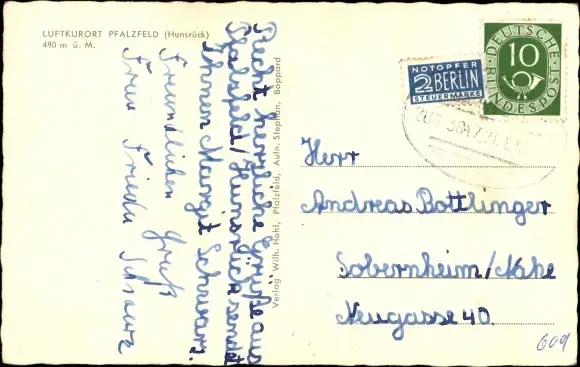 LUFTKURORT PFALZFELD (Hunsrück)
480 m ü. M.
Recht herzliche Grüße aus
Pfalzfeld/Hunsrück sendet
Ihnen Margit Schwarz.
Freundlichen Gruß
Frau Frieda Schwarz
Verlag Wilh. Hohl, Pfalzfeld, Aufn. Stephan, Boppard
NOTOPFER
2 BERLIN
STEUERMARKE
DEUTSCHE
10
BUNDESPOST
ZUG
Herr
Andreas Bottlinger
Sobernheim/Nahe
Neugasse 40.
609